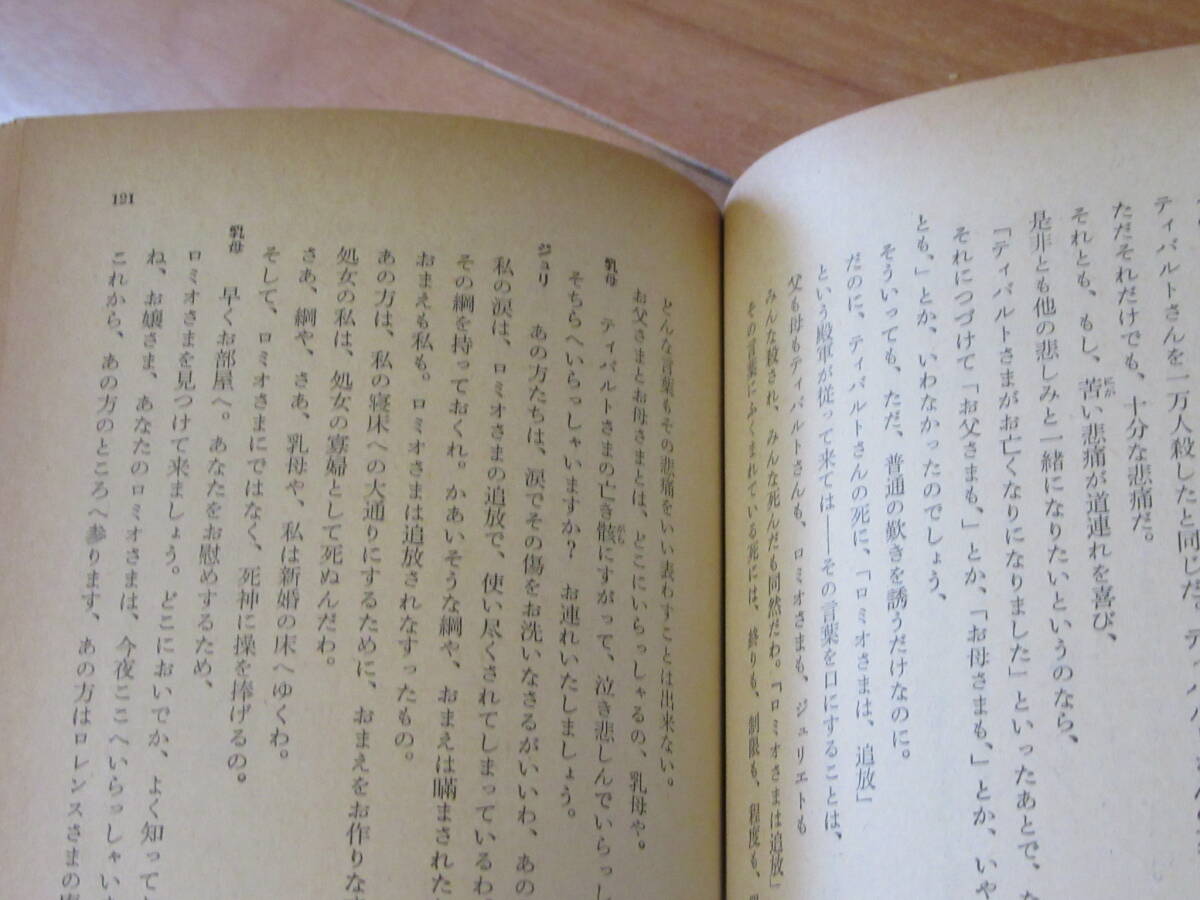 ティバルトさんを一万人殺したと同じだ。
ただそれだけでも、十分な悲痛だ。
それとも、もし、苦い悲痛が道連れを喜び、
是非とも他の悲しみと一緒になりたいというのなら、
「ティバルトさまがお亡くなりになりました」といったあとで、な
それにつづけて「お父さまも、」とか、「お母さまも、」とか、いや
とも、」とか、いわなかったのでしょう、
そういっても、ただ、普通の歎きを誘うだけなのに。
だのに、ティバルトさんの死に、「ロミオさまは、追放」
という殿軍が従って来ては——その言葉を口にすることは、
父も母もティバルトさんも、ロミオさまも、ジュリエトも
みんな殺され、みんな死んだも同然だわ。「ロミオさまは追放」
その言葉にふくまれている死には、終りも、制限も、程度も、
どんな言葉もその悲痛をいい表わすことは出来ない。
お父さまとお母さまとは、どこにいらっしゃるの、乳母や。
乳母 ティバルトさまの亡き骸にすがって、泣き悲しんでいらっし
そちらへいらっしゃいますか? お連れいたしましょう。
ジュリ あの方たちは、涙でその傷をお洗いなさるがいいわ、あの
私の涙は、ロミオさまの追放で、使い尽くされてしまっているわ
その綱を持っておくれ。かあいそうな綱や、おまえは瞞まされた
おまえも私も。ロミオさまは追放されなすったもの。
あの方は、私の寝床への大通りにするために、おまえをお作りな
処女の私は、処女の寡婦として死ぬんだわ。
さあ、綱や、さあ、乳母や、私は新婚の床へゆくわ。
そして、ロミオさまにではなく、死神に操を捧げるの。
乳母 早くお部屋へ。あなたをお慰めするため、
ロミオさまを見つけて来ましょう。どこにおいでか、よく知って
ね、お嬢さま、あなたのロミオさまは、今夜ここへいらっしゃい
これから、あの方のところへ参ります、あの方はロレンスさまの
121